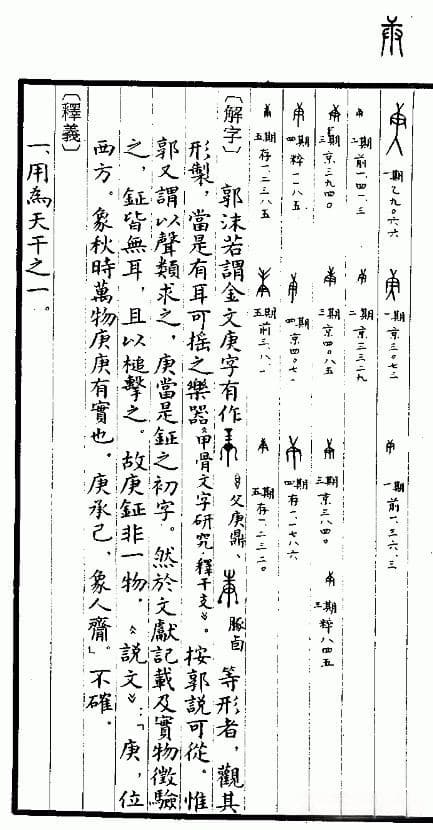 一期乙九〇六六 一期京三〇七二 一期前一.三六.三
前一.四一.三 二期京三三二九
三期京三九四〇 三期京四〇八五 三期京三八四〇 三期粹八四五
四期粹一一八五 四期京四〇七〇 四期存一.一七八六
五期存一.二三八五 五期前三.八.一 五期存一.二三二〇
〔解字〕郭沫若謂金文庚字有作《父庚鼎》、豚卣等形者,觀其
形製,當是有耳可搖之樂器《甲骨文字研究.釋干支》。按郭說可從。惟
郭又謂以聲類求之,庚當是鉦之初字。然於文獻記載及實物徵驗
之,鉦皆無耳,且以槌擊之。故庚鉦非一物。《說文》:「庚,位
西方。象秋時萬物庚庚有實也。庚承己,象人齎。」不確。
〔釋義〕
一、用為天干之一。